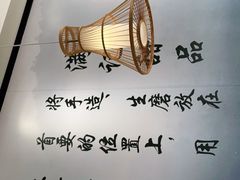 满 品
将手造、生磨放在
首要的位置上，用